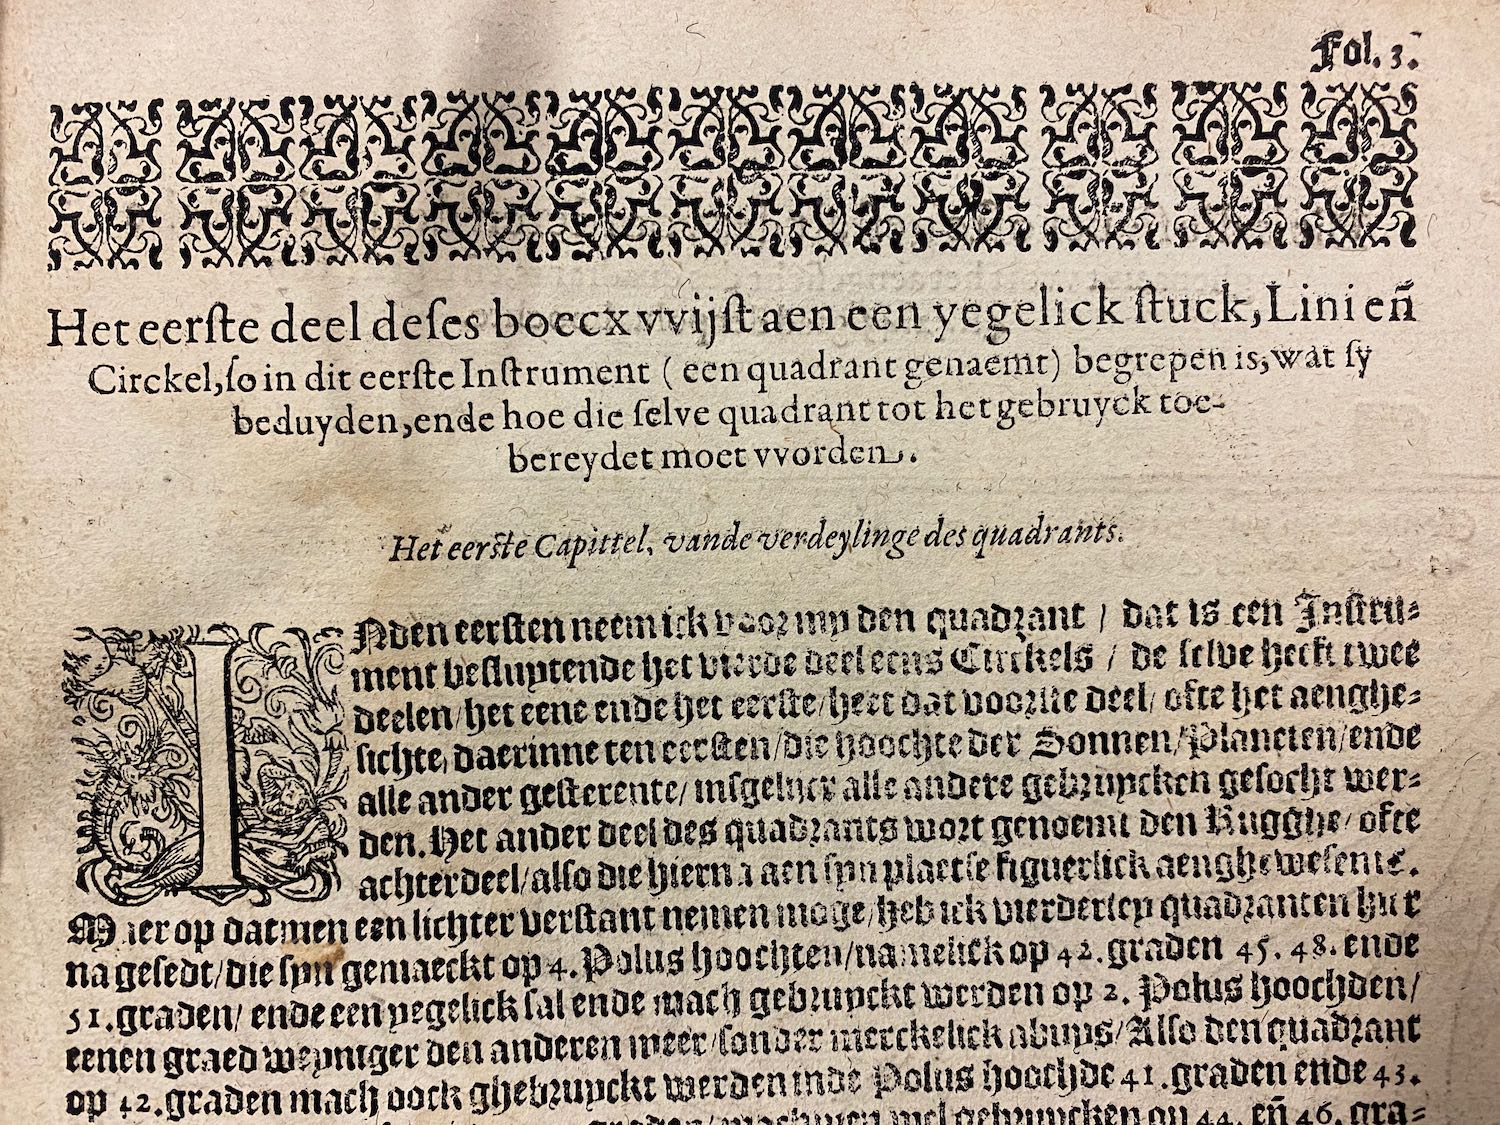 Fol. 3.
Het eerſte deel deſes boecx vvijſt aen een yegelick ſtuck, Lini en̄
Circkel, ſo in dit eerſte Inſtrument ( een quadrant genaemt) begrepen is, wat ſy
beduyden, ende hoe die ſelve quadrant tot het gebruyck toe-
bereydet moet vvorden.
Het eerſte Capittel, vande verdeylinge des quadrants.
INden eerſten neem ick voor my den quadrant / dat is een Inſtru⸗
ment beſluytende het vierde deel eens Circkels / de ſelve heeft twee
deelen/ het eene ende het eerſte/ heet dat voorſte deel/ ofte het aenghe⸗
ſichte, daerinne ten eerſten/ die hoochte der Sonnen/ Planeten/ ende
alle ander geſterente/ inſgelijcx alle andere gebruycken geſocht wer⸗
den. Het ander deel des quadrants wort genoemt den Rugghe/ ofte
achterdeel/ alſo die hierna aen ſyn plaetſe figuerlick aengheweſen is.
Maer op datmen een lichter verſtant nemen moge/ heb ick vierderley quadranten hier
na geſedt/ die ſyn gemaeckt op 4. Polus hoochten/ namelick op 42. graden 45. 48. ende
51. graden/ ende een yegelick ſal ende mach gebruyckt werden op 2. Polus hoochden/
eenen graed weyniger den anderen meer/ ſonder merckelick abuys/ Alſo den quadrant
op 42. graden mach oock ghebruyckt werden inde Polus hoochde 41. graden ende 43.
graden/ machmen wel gebruycken op 44. en̄ 46. gra⸗